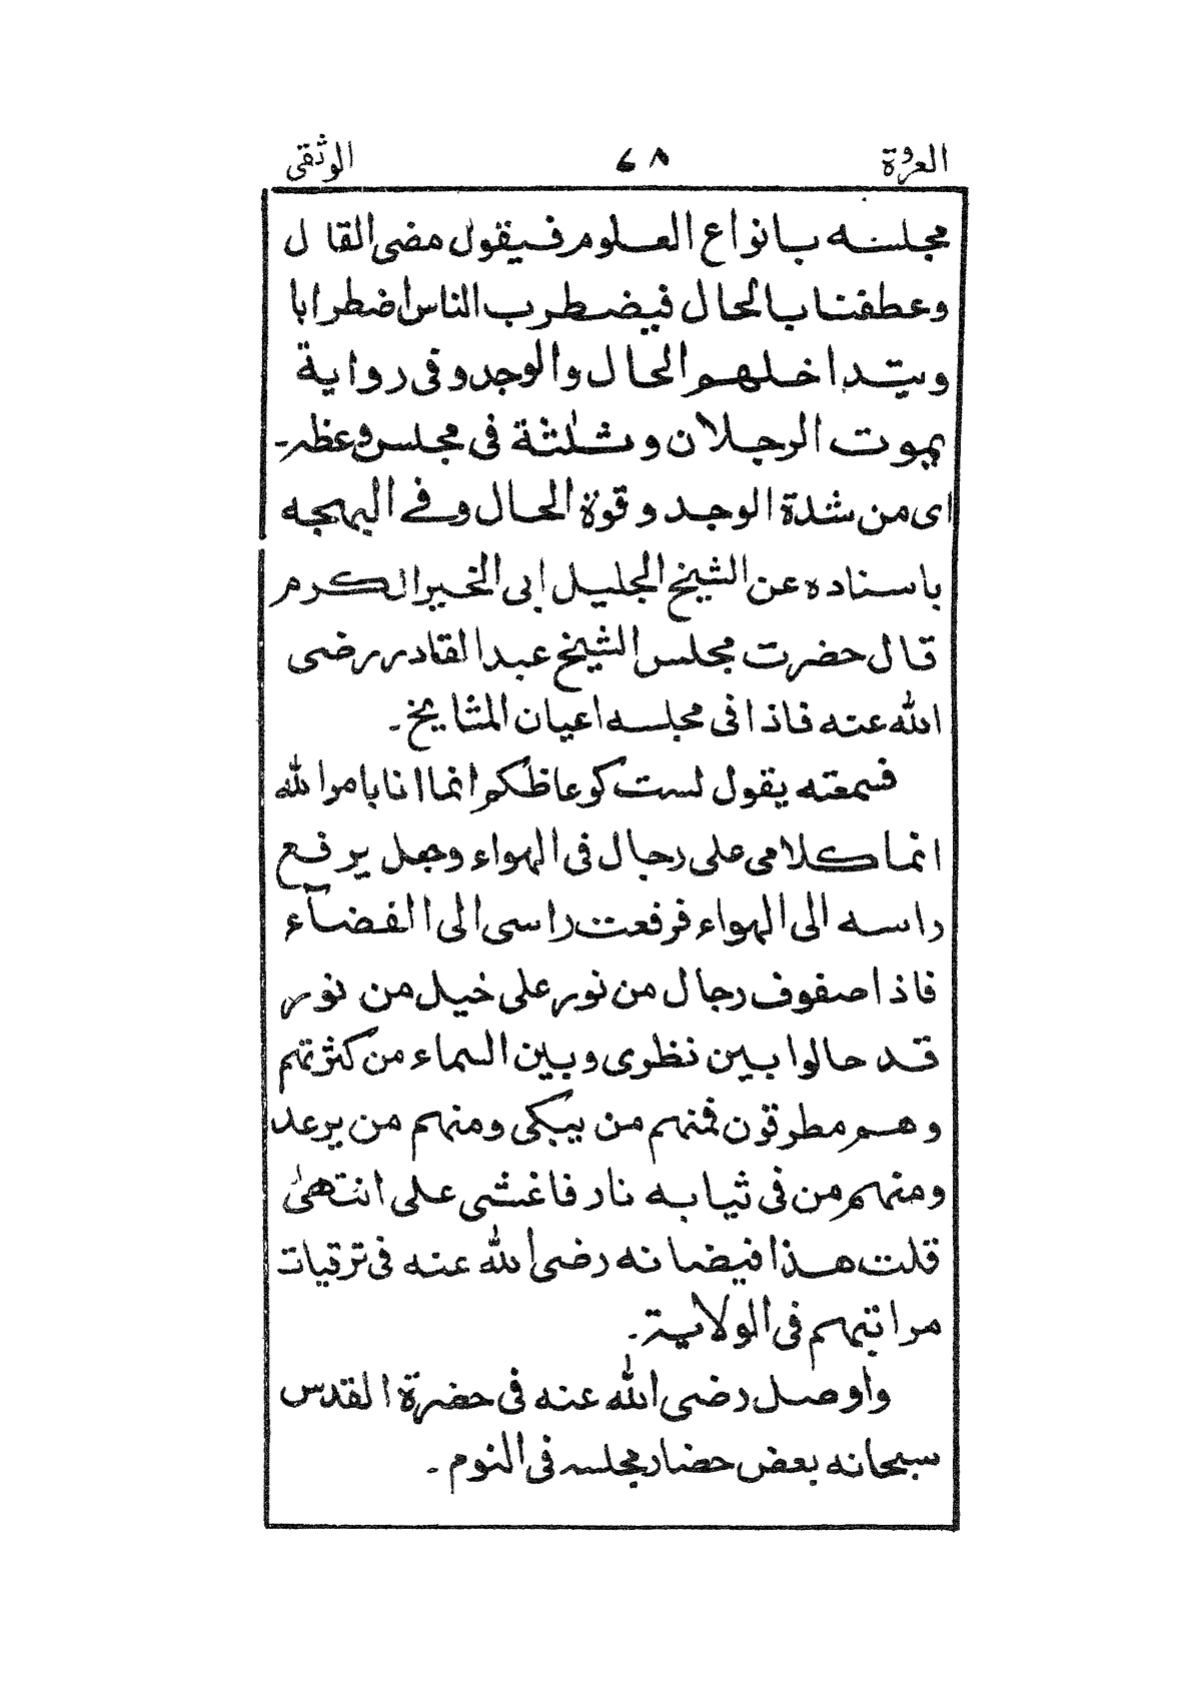 العروة ٦٨ الوثقى
مجلسه بانواع العلوم فيقول مضى القال
وعطفنا بالحال فيضطرب الناس اضطرابا
ويتداخلهم الحال والوجد وفى رواية
يموت الرجلان وثلثة فى مجلس وعظه-
اى من شدة الوجد وقوة الحال وفے البهجه
باسناده عن الشيخ الجليل ابى الخير الكرم
قال حضرت مجلس الشيخ عبد القادر رضى
الله عنه فاذا فى مجلسه اعيان المشايخ۔
فسمعته يقول لست كوعاظكم انما انا بامر الله
انما كلامى على رجال فى الهواء وجعل يرفع
راسه الى الهواء فرفعت راسى الى الفضآء
فاذا صفوف رجال من نور على خيل من نور
قد حالوا بين نظرى وبين السماء من كثرتهم
وهم مطرقون فمنهم من يبكى ومنهم من يرعد
ومنهم من فى ثيابه نار فاغشى على انتهىٰ
قلت هذا فيضانه رضى الله عنه فى ترقيات
مراتبهم فى الولاية۔
واوصل رضى الله عنه فى حضرة القدس
سبحانه بعض حضار مجلسه فى النوم۔